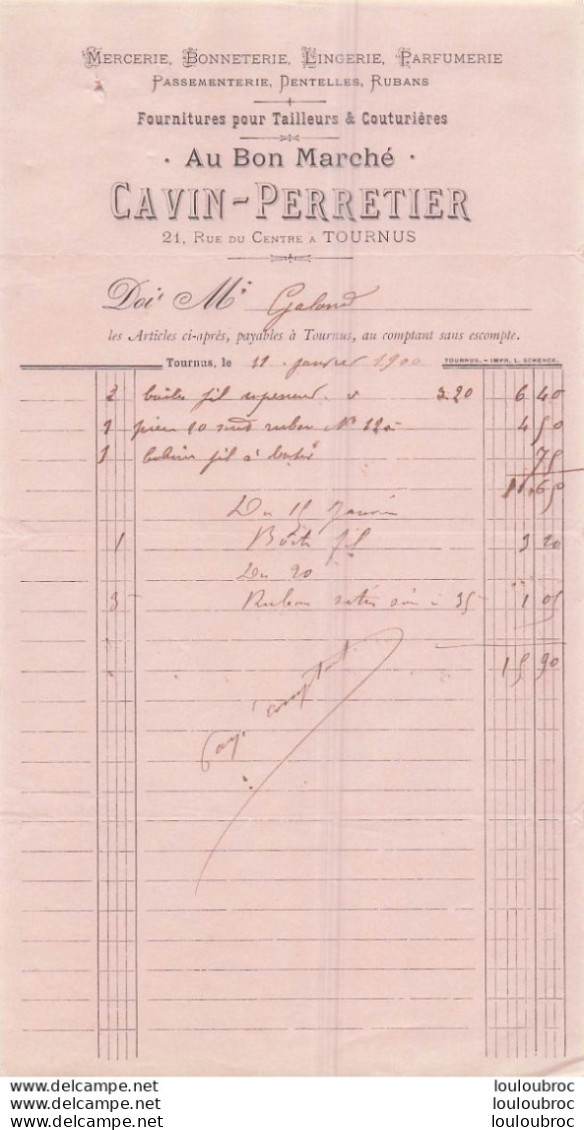 Mercerie, Bonneterie, Lingerie, Parfumerie
Passementerie, Dentelles, Rubans
Fournitures pour Tailleurs & Couturières
· Au Bon Marché ·
CAVIN-PERRETIER
21, Rue du Centre à TOURNUS
Doit M
les Articles ci-après, payables à Tournus, au comptant sans escompte.
Tournus, le 11 janvier 1900 TOURNUS. - IMPR. L. SCHENCK.
2 boites fil superieur 3.20 6 40
1 10 ruban N° 12 4 50
1 fil à 75
11,65
Du 15 Janvier
1 Boite fil 3 20
Du 20
3 Ruban satin à 35 1 05
15 90
Payé comptant
www.delcampe.net louloubroc
www.delcampe.net louloubroc
www.delcampe.net louloubroc